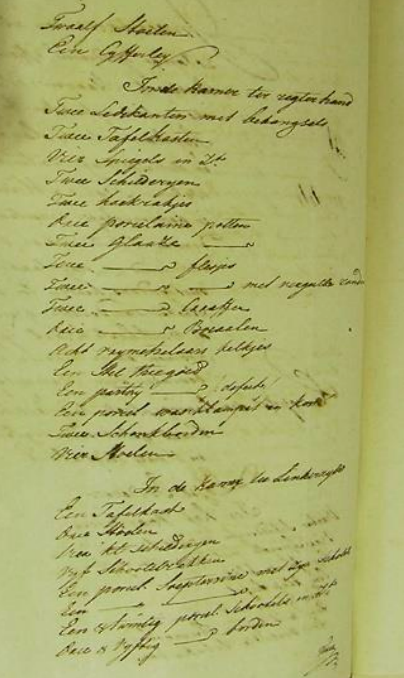 Twaalf Stoelen
Een Cyfferley
In de kamer ter regterhand
Twee Ledekanten met behangsels
Twee Tafelkasten
Vier Spiegels in
Twee Schilderyen
Twee hoekrakjes
Drie porcelaine potten
Twee Glaaze
Twee flesjes
Twee met vergulde randen
Twee Caraffen
Drie Bocaalen
Acht kelkjes
Een Stel theegoed
Een party defecte
Een porcel. waschlampet en kom
Twee Schenkborden
Vier Stoelen
In de Kamer ter Linkerzyde
Een Tafelkast
Drie Stoelen
Vier kl. schilderyen
Vyf Schotelrakken
Een porcel. Soepterrine met zyn schotel
Een
Een & twintig porcel. Schootels
Drie & Vyftig borden